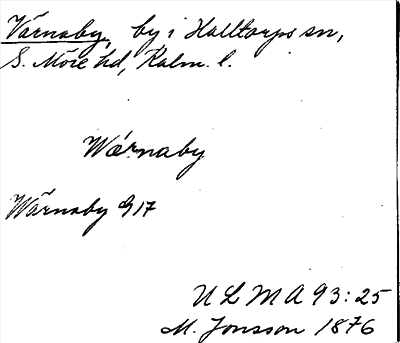 Värnaby, by i Halltorps sn,
S. Möre hd, Kalm. l.
Wärnaby
Wärnaby G17
ULMA 93:25
M. Jonsson 1876